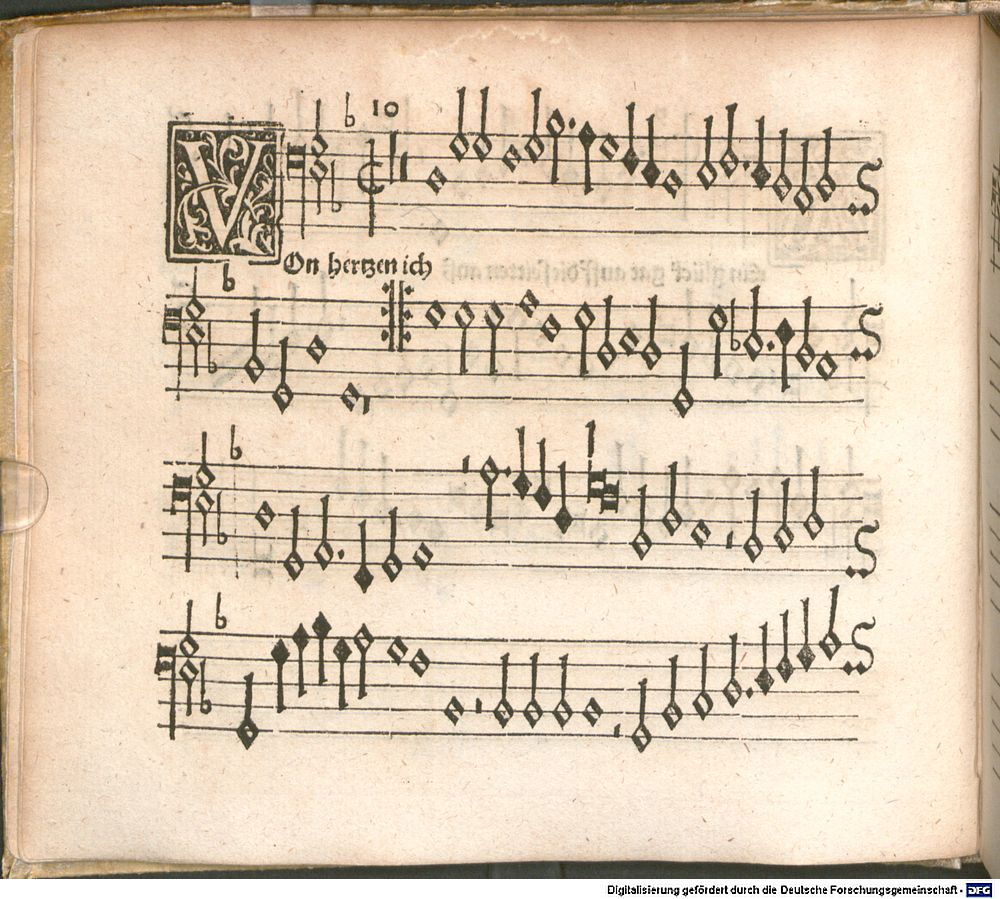 10
VOn hertzen ich
Digitalisierung gefördert durch die Deutsche Forschungsgemeinschaft - DFG